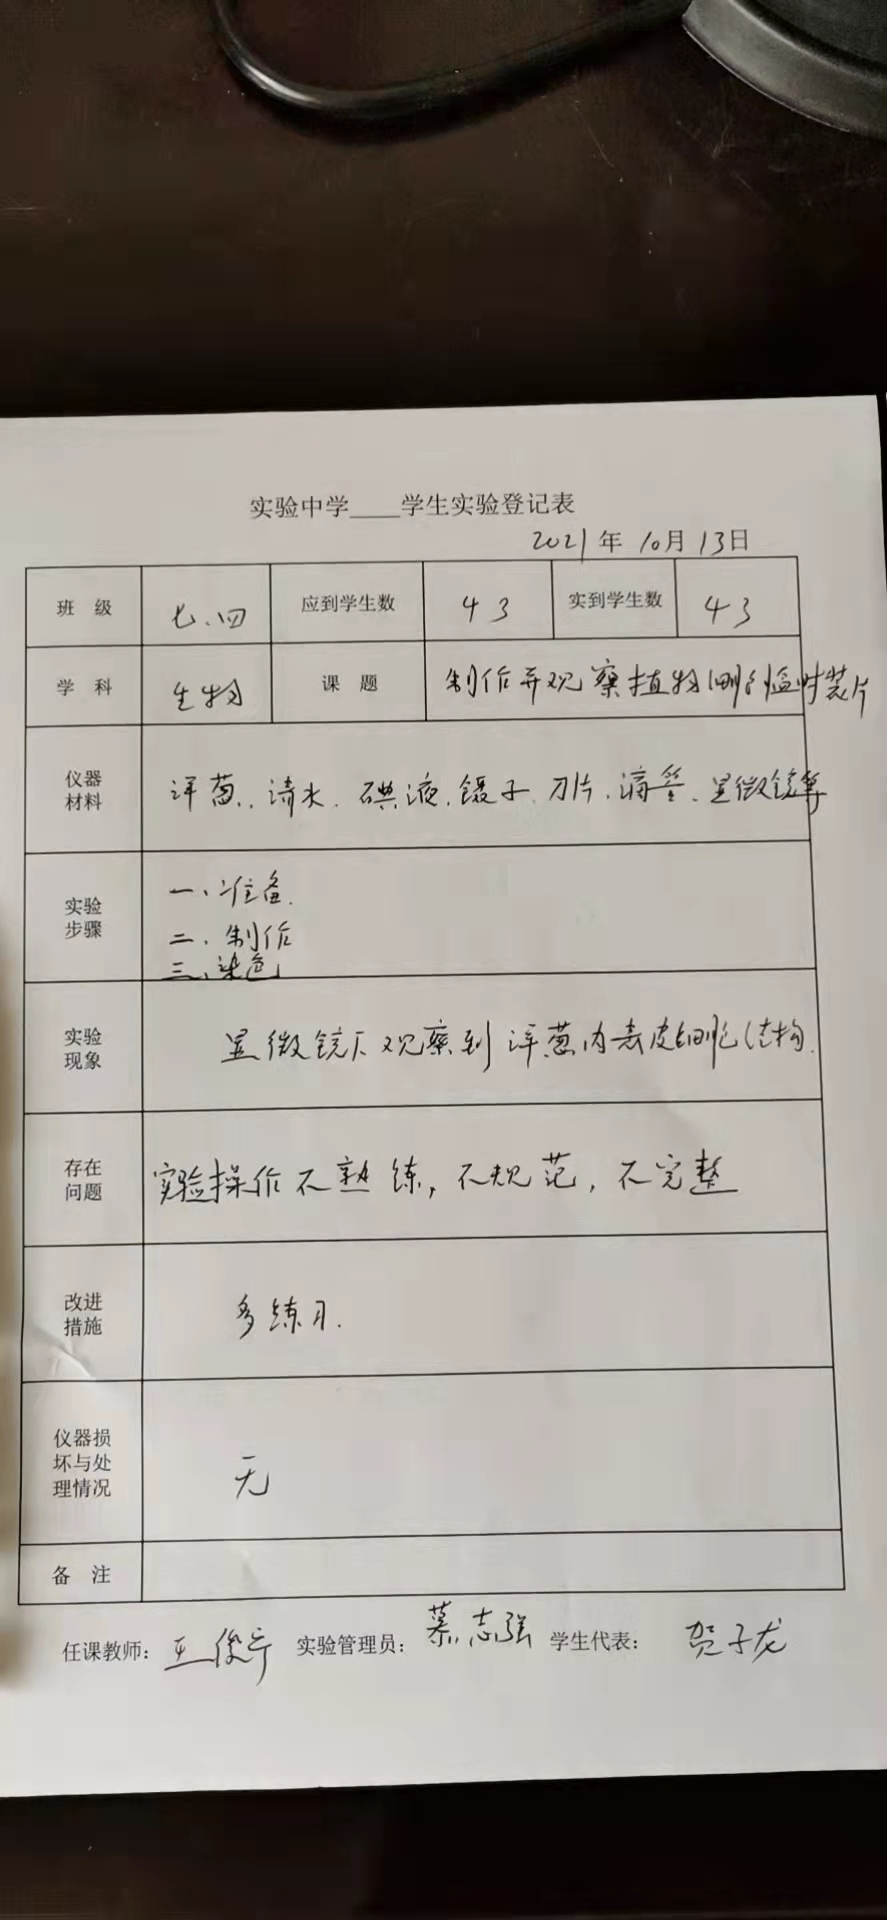 实验中学____学生实验登记表
2021年 10月 13日
班 级 七.四 应到学生数 43 实到学生数 43
学 科 生物 课 题 制作并观察植物细胞临时装片
仪器
材料
洋葱.清水.碘液.镊子.刀片.滴管.显微镜等
实验
步骤
一、准备.
二.制作
三、染色
实验
现象
显微镜下观察到洋葱内表皮细胞结构.
存在
问题
实验操作不熟练,不规范,不完整
改进
措施
多练习.
仪器损
坏与处
理情况
无
备 注
任课教师: 王俊宁 实验管理员: 慕志强 学生代表: 贺子龙